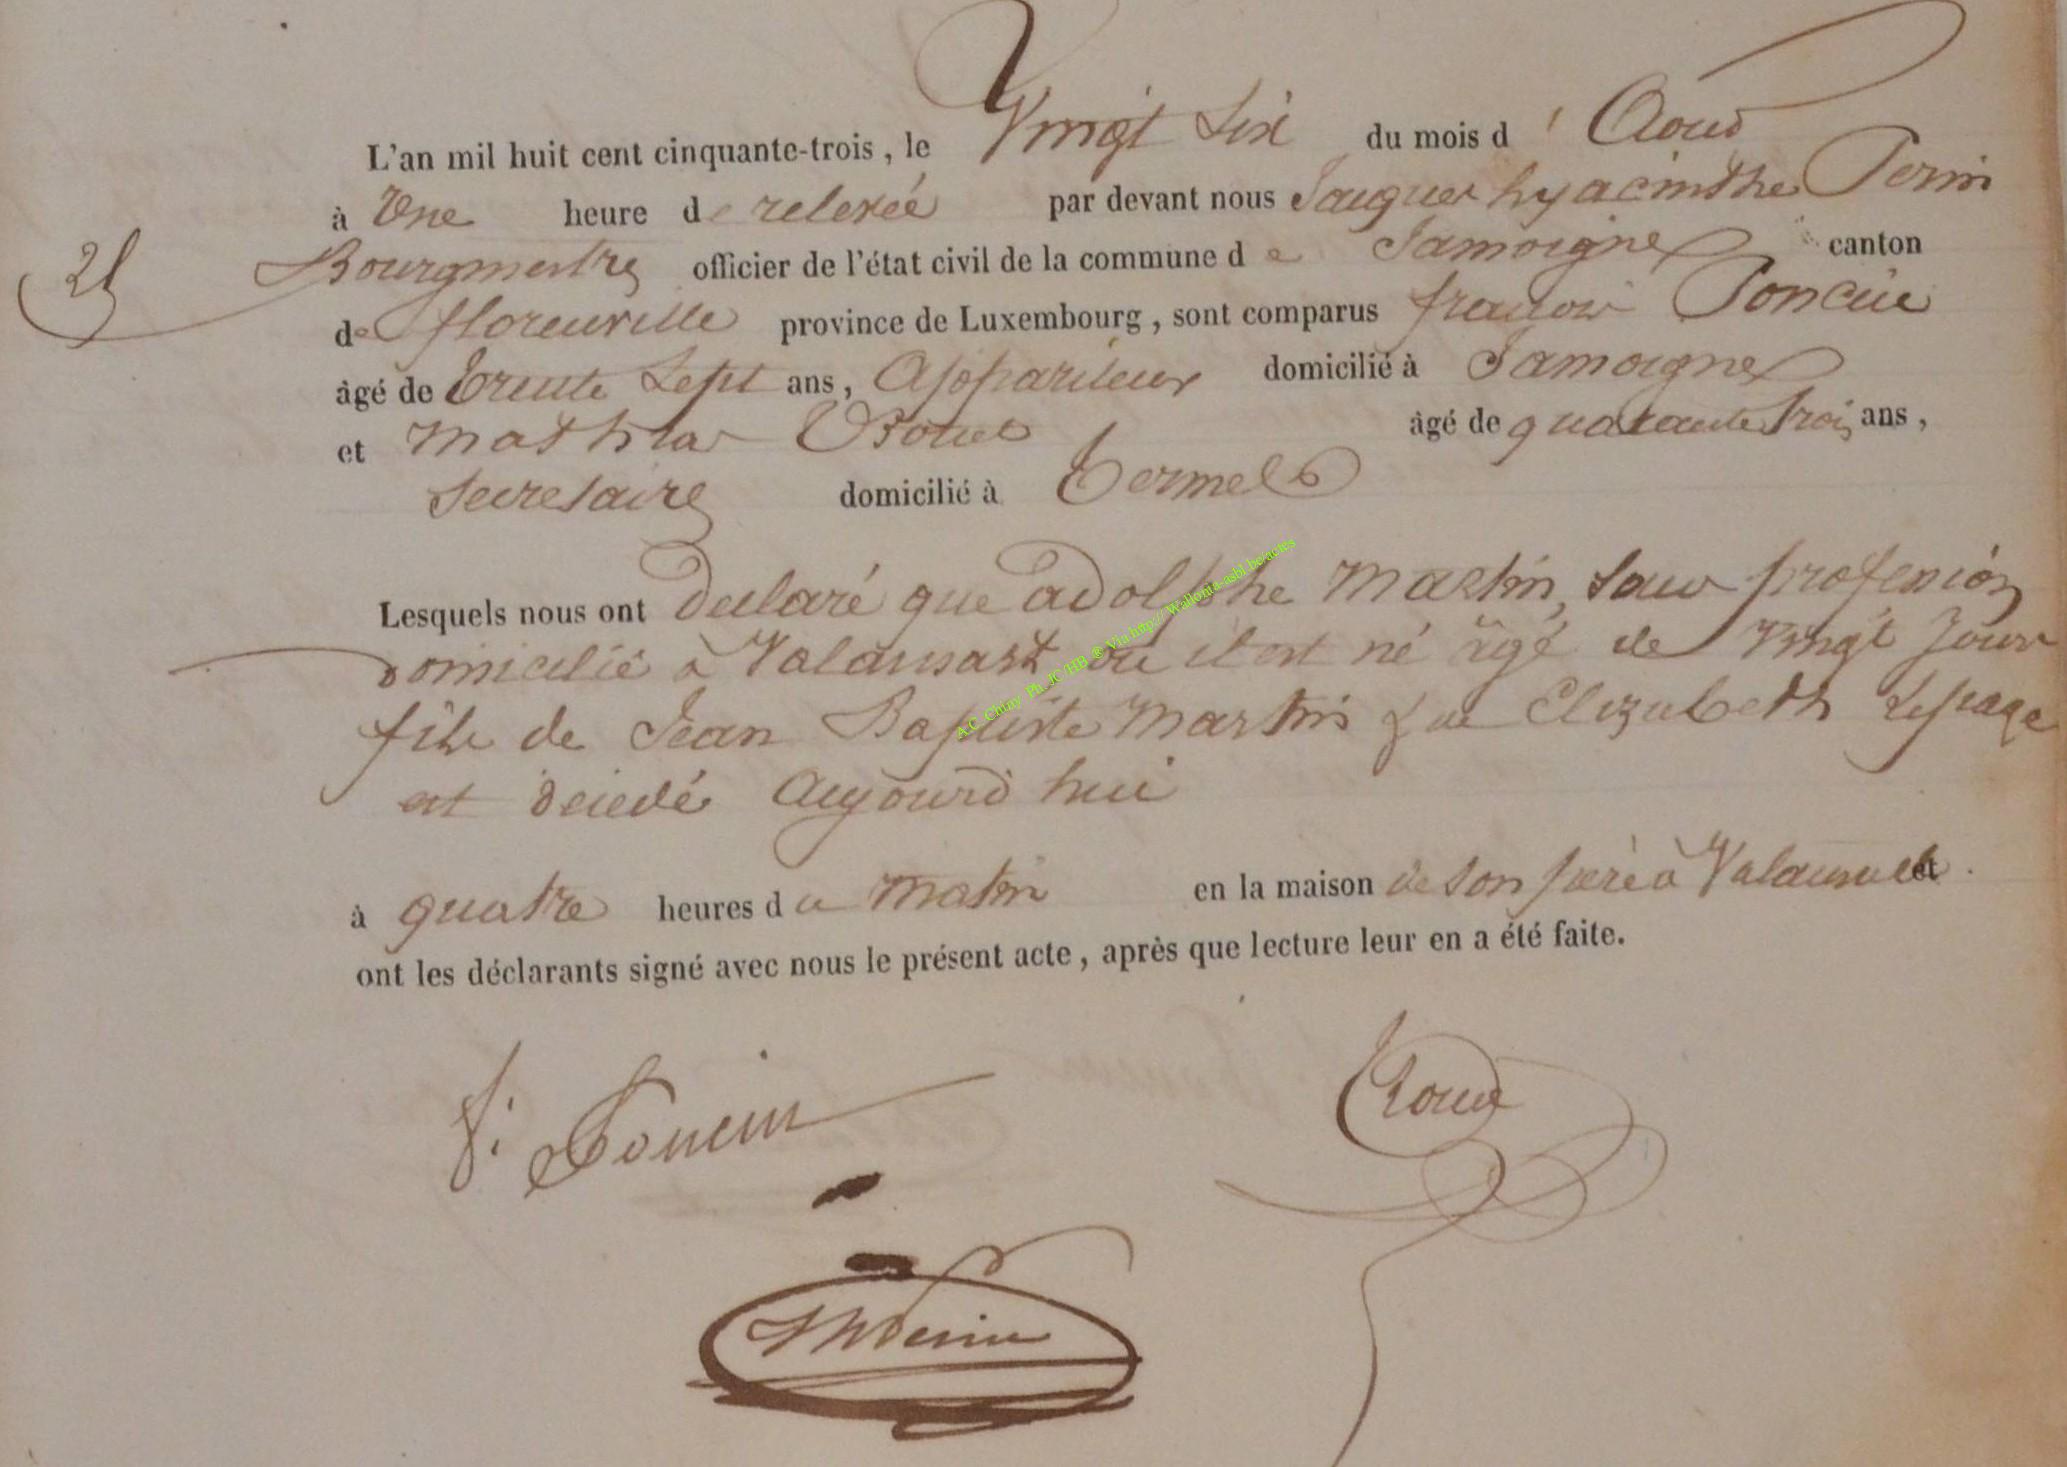 L'an mil huit cent cinquante-trois, le Vingt Six du mois d' Aout
à Une heure de relevée par devant nous Jacques hyacinthe Perin
25 Bourgmestre officier de l'état civil de la commune de Jamoigne canton
de florenville province de Luxembourg, sont comparus françois Poncin
âgé de trente Sept ans, Appariteur domicilié à Jamoigne
et Mathias âgé de quarante trois ans,
Secretaire domicilié à Termes
Lesquels nous ont declaré que adolphe Martin, sans profession
domicilié à Valansart ou il est né âgé de Vingt Jours
fils de Jean Baptiste Martin & de Elizabeth Lepage
est décédé aujourd hui
à quatre heures du matin en la maison de son père à Valansart et
ont les déclarants signé avec nous le présent acte, après que lecture leur en a été faite.
A.C. Chiny Ph. JC HB ® Via http://Wallonia-asbl.be/actes
f. Poncin
JhPerin